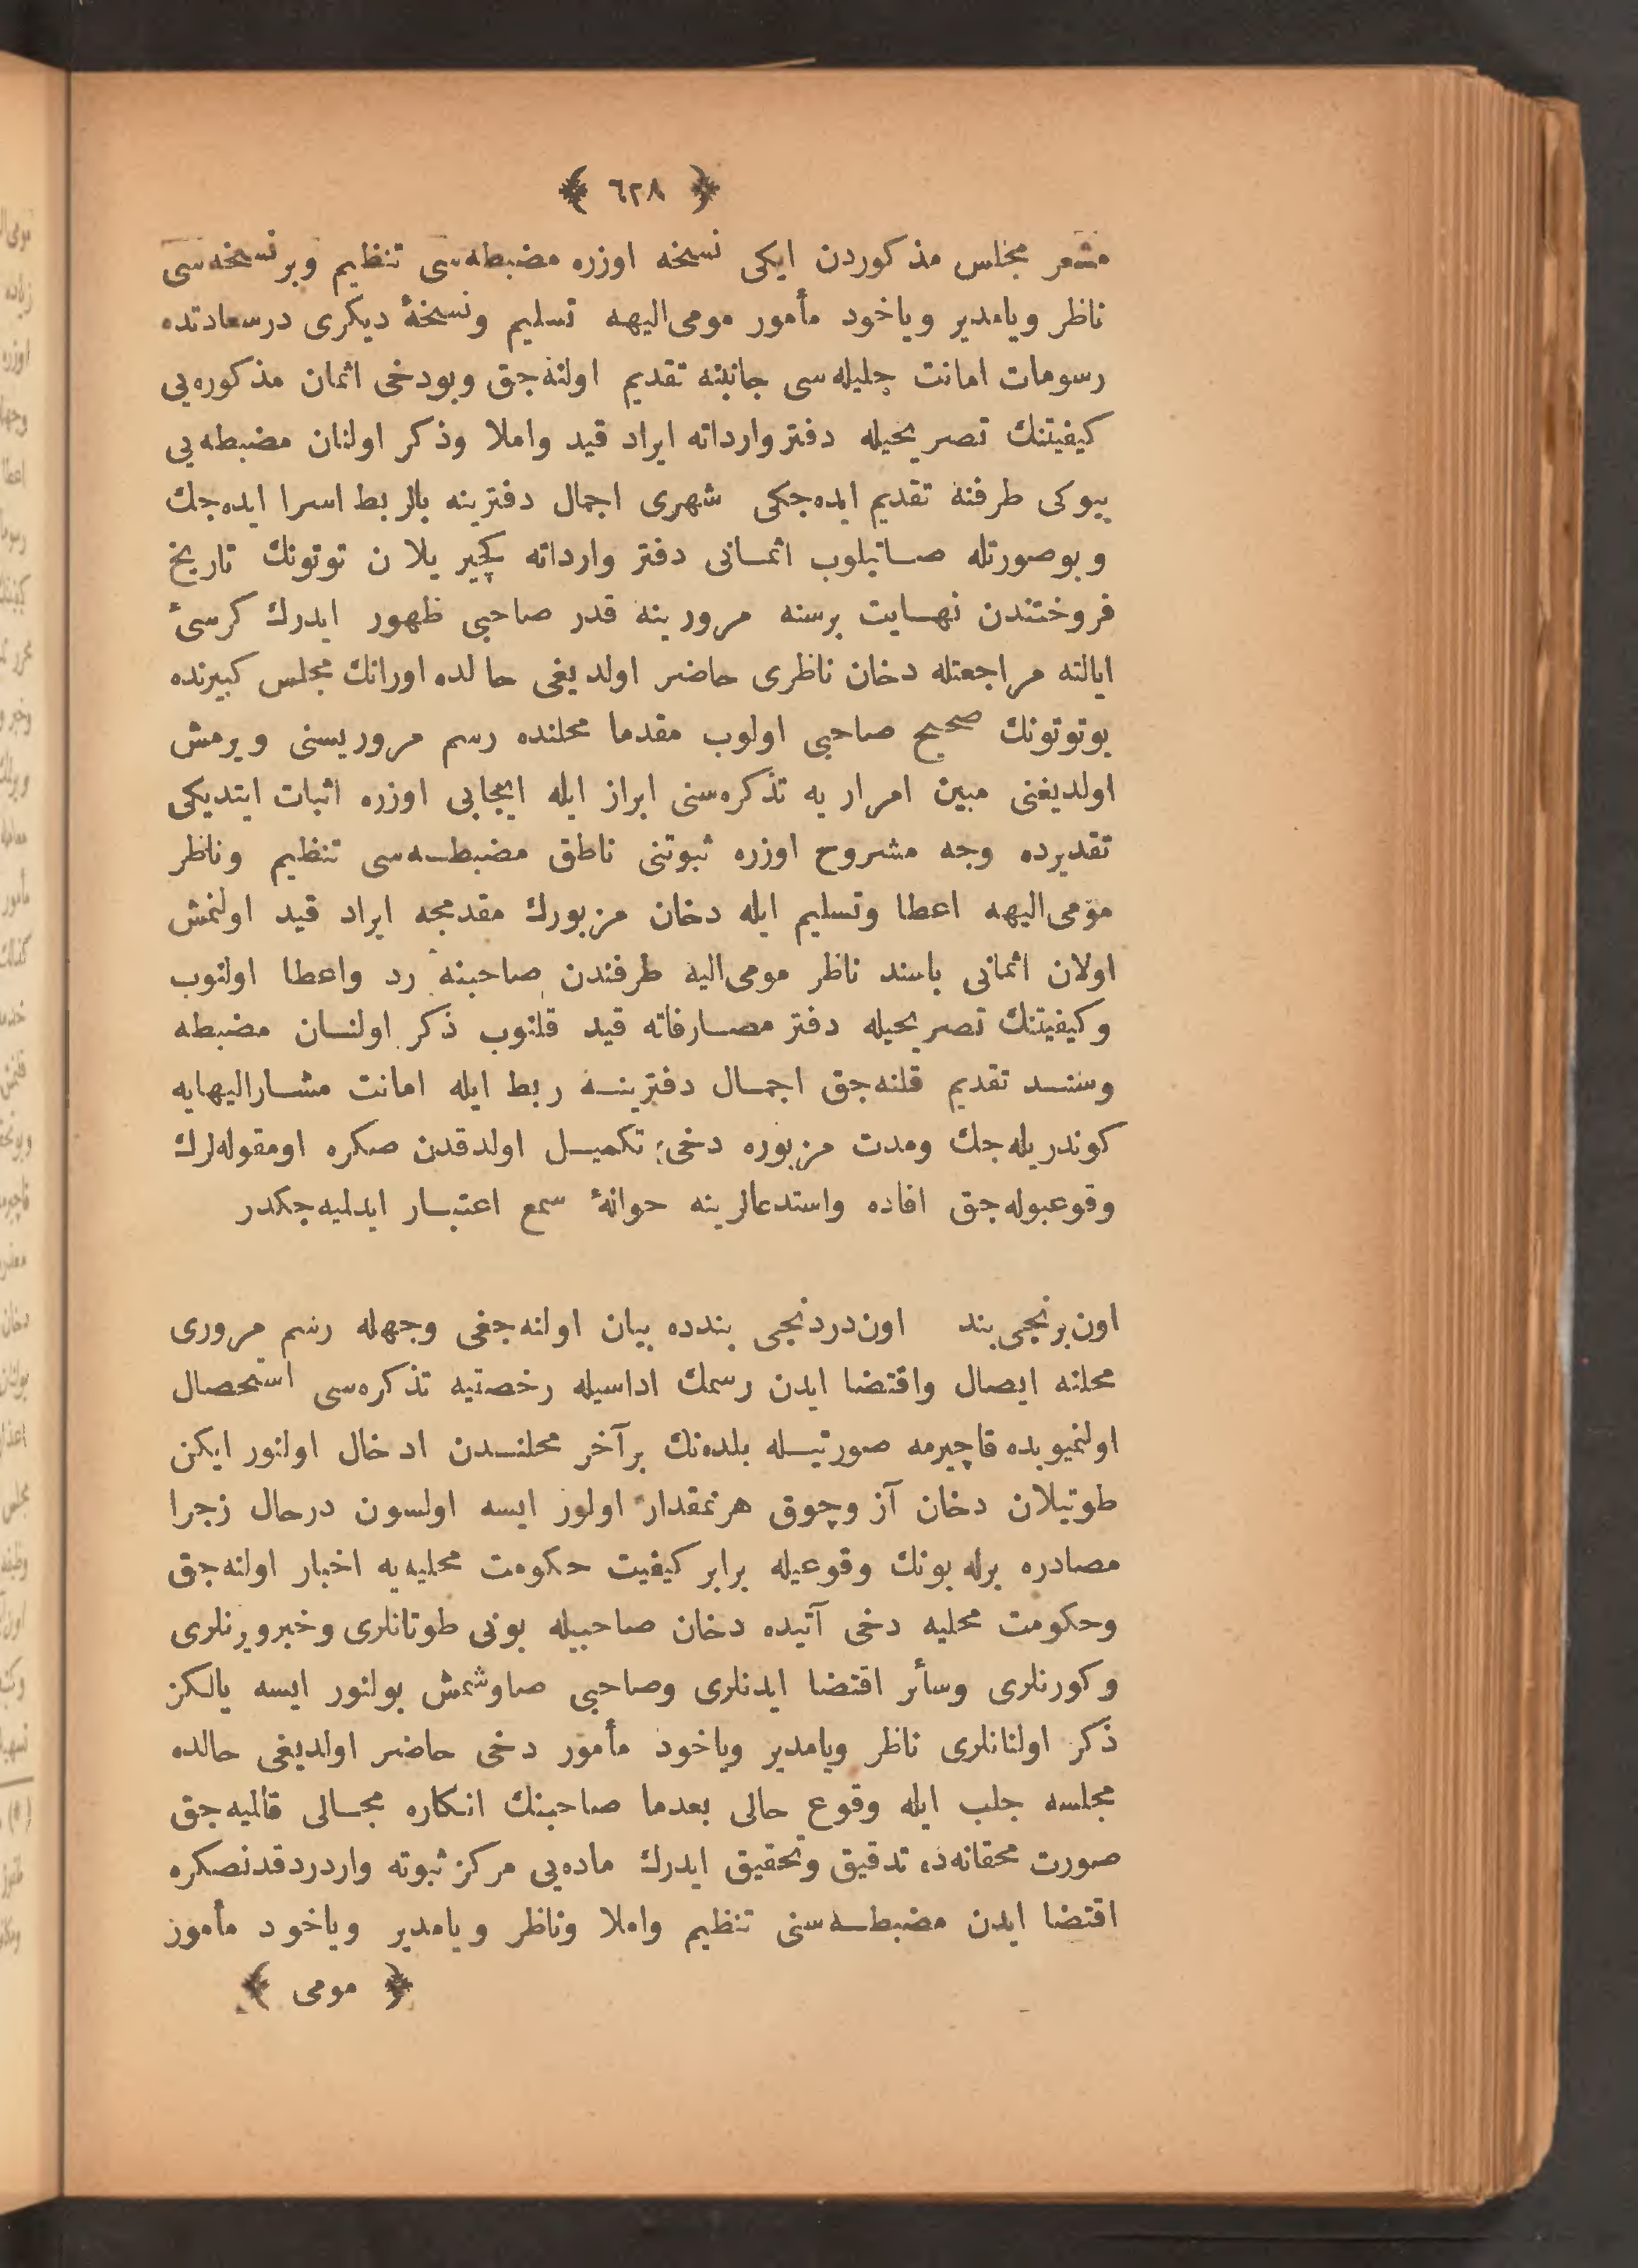 ﴿ ٦٢٨ ﴾
مشعر مجلس مذكوردن ايكی نسخه اوزره مضبطه‌سی تنظيم وبر نسخه‌سی
ناظر ويامدير وياخود مأمور مومی‌اليهه تسليم ونسخهٔ ديكری درسعادتده
رسومات امانت جليله‌سی جانبنه تقديم اولنه‌جق وبودخی اثمان مذكوره‌یی
كيفيتنك تصريحيله دفتر وارداته ايراد قيد واملا وذكر اولنان مضبطه‌یی
بيوكی طرفنه تقديم ايده‌جكی شهری اجمال دفترينه بالربط اسرا ايده‌جك
وبوصورتله صاتيلوب اثمانی دفتر وارداته كچيريلان توتونك تاريخ
فروختندن نهايت برسنه مرورينه قدر صاحبی ظهور ايدرك كرسیٔ
ايالته مراجعتله دخان ناظری حاضر اولديغی حالده اورانك مجلس كبيرنده
بوتوتونك صحيح صاحبی اولوب مقدما محلنده رسم مروريسنی ويرمش
اولديغنی مبين امراريه تذكره‌سنی ابراز ايله ايجابی اوزره اثبات ايتديكی
تقديرده وجه مشروح اوزره ثبوتنی ناطق مضبطه‌سی تنظيم وناظر
مومی‌اليهه اعطا وتسليم ايله دخان مزبورك مقدمجه ايراد قيد اولنمش
اولان اثمانی باسند ناظر مومی‌اليه طرفندن صاحبنه رد واعطا اولنوب
وكيفيتنك تصريحيله دفتر مصارفاته قيد قلنوب ذكر اولنان مضبطه
وسند تقديم قلنه‌جق اجمال دفترينه ربط ايله امانت مشاراليهايه
كوندريله‌جك ومدت مزبوره دخی تكميل اولدقدن صكره اومقوله‌لرك
وقوعبوله‌جق افاده واستدعالرينه حوالهٔ سمع اعتبار ايدلميه‌جكدر
اون‌برنجی‌بند اون‌دردنجی بندده بيان اولنه‌جغی وجهله رسم مروری
محلنه ايصال واقتضا ايدن رسمك اداسيله رخصتيه تذكره‌سی استحصال
اولنميوبده قاچيرمه صورتيله بلده‌نك برآخر محلندن ادخال اولنور ايكن
طوتيلان دخان آز وچوق هرنمقدار اولور ايسه اولسون درحال زجرا
مصادره برله بونك وقوعيله برابر كيفيت حكومت محليه‌يه اخبار اولنه‌جق
وحكومت محليه دخی آتيده دخان صاحبيله بونی طوتانلری وخبرويرنلری
وكورنلری وسائر اقتضا ايدنلری وصاحبی صاوشمش بولنور ايسه يالكز
ذكر اولنانلری ناظر ويامدير وياخود مأمور دخی حاضر اولديغی حالده
مجلسه جلب ايله وقوع حالی بعدما صاحبنك انكاره مجالی قالميه‌جق
صورت محقانه‌ده تدقيق وتحقيق ايدرك ماده‌یی مركز ثبوته واردردقدنصكره
اقتضا ايدن مضبطه‌سنی تنظيم واملا وناظر ويامدير وياخود مأمور
﴿ مومی ﴾